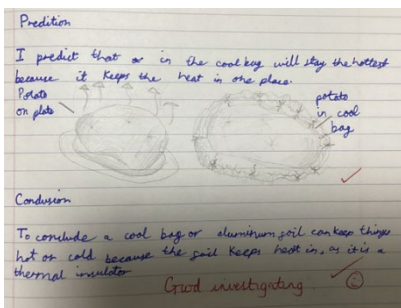 Predition
I predict that or in the cool bag will stay the hottest
because it keeps the heat in one place.
Potato
on plate
potato
in cool
bag
Conclusion
To conclude a cool bag or aluminum foil can keep things
hot or cold because the foil keeps heat in, as it is a
thermal insulator
Good investigating